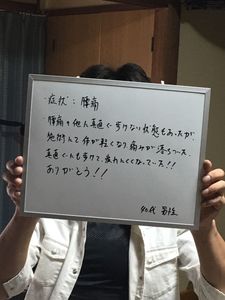 ・症状：腰痛
・腰痛の他に真直ぐ歩けない状態もあったが
施術して体が軽くなり痛みが落ちついた。
真直ぐにも歩けて、疲れにくくなっている!!
ありがとう!!
40代 男性